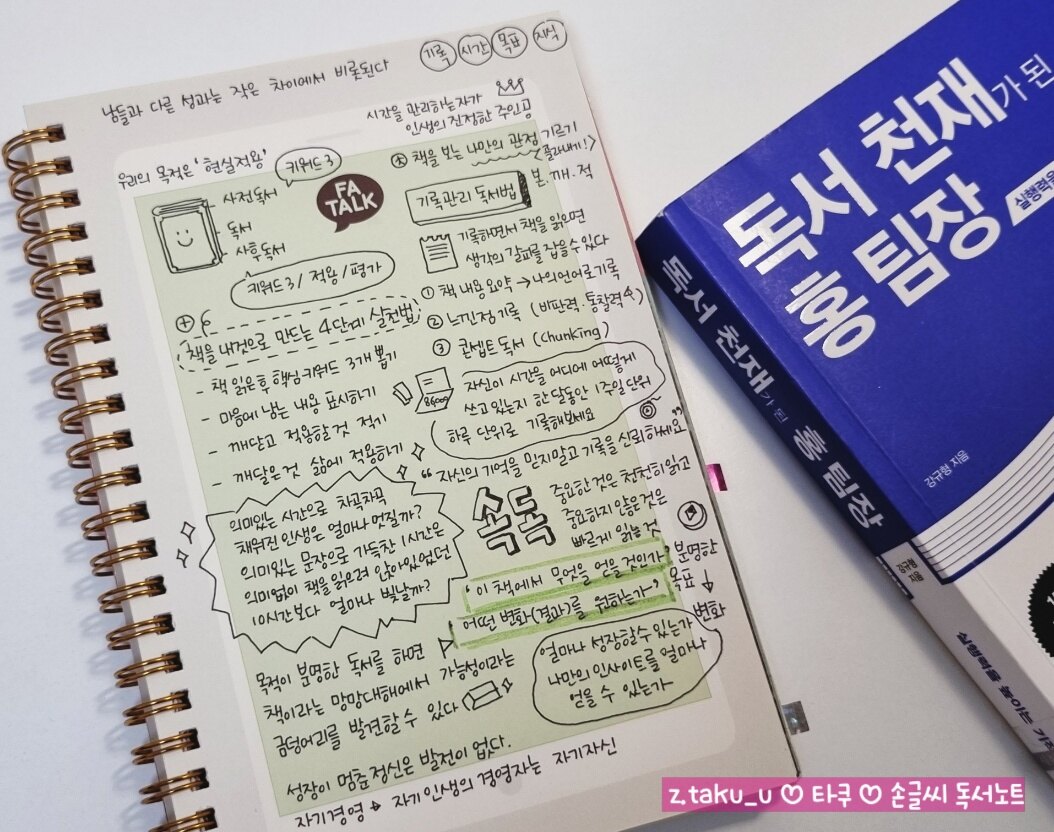 기록 시간 목표 지식
남들과 다른 성과는 작은 차이에서 비롯된다
시간을 관리하는자가
인생의 진정한 주인공
우리의 목적은 '현실적용'
키워드 3
사전독서
독서
사후독서
키워드3 / 적용 / 평가
FA
TALK
책을 보는 나만의 관점 기르기
<골라내기!>
기록관리 독서법
본.깨.적
기록하면서 책을 읽으면
생각의 갈피를 잡을 수 있다
① 책 내용 요약 → 나의 언어로 기록
② 느낀점 기록 (비판력.통찰력↑)
③ 콘셉트 독서 (Chunking)
책을 내것으로 만드는 4단계 실천법
- 책 읽은 후 핵심 키워드 3개 뽑기
- 마음에 남는 내용 표시하기
- 깨닫고 적용할 것 적기
- 깨달은 것 삶에 적용하기
86400
자신이 시간을 어디에 어떻게
쓰고 있는지 한 달동안 1주일 단위
하루 단위로 기록해보세요
"자신의 기억을 믿지말고 기록을 신뢰하세요"
의미있는 시간으로 차곡차곡
채워진 인생은 얼마나 멋질까?
의미있는 문장으로 가득찬 1시간은
의미없이 책을 읽으려 앉아있었던
10시간보다 얼마나 빛날까?
속독
중요한 것은 천천히 읽고
중요하지 않은 것은
빠르게 읽는 것
"이 책에서 무엇을 얻을 것인가
어떤 변화(결과)를 원하는가"
분명한
목표
↓
변화
얼마나 성장할 수 있는가
나만의 인사이트를 얼마나
얻을 수 있는가
목적이 분명한 독서를 하면
책이라는 망망대해에서 가능성이라는
금덩어리를 발견할 수 있다
성장이 멈춘 정신은 발전이 없다.
자기경영 → 자기 인생의 경영자는 자기자신
독서 천재가 된
홍 팀장
실행력을
강규형 지음
독서 천재가 된 홍 팀장
강규형 지음
실행력을 높이는
z.taku_u ♡ 타쿠 ♡ 손글씨 독서노트